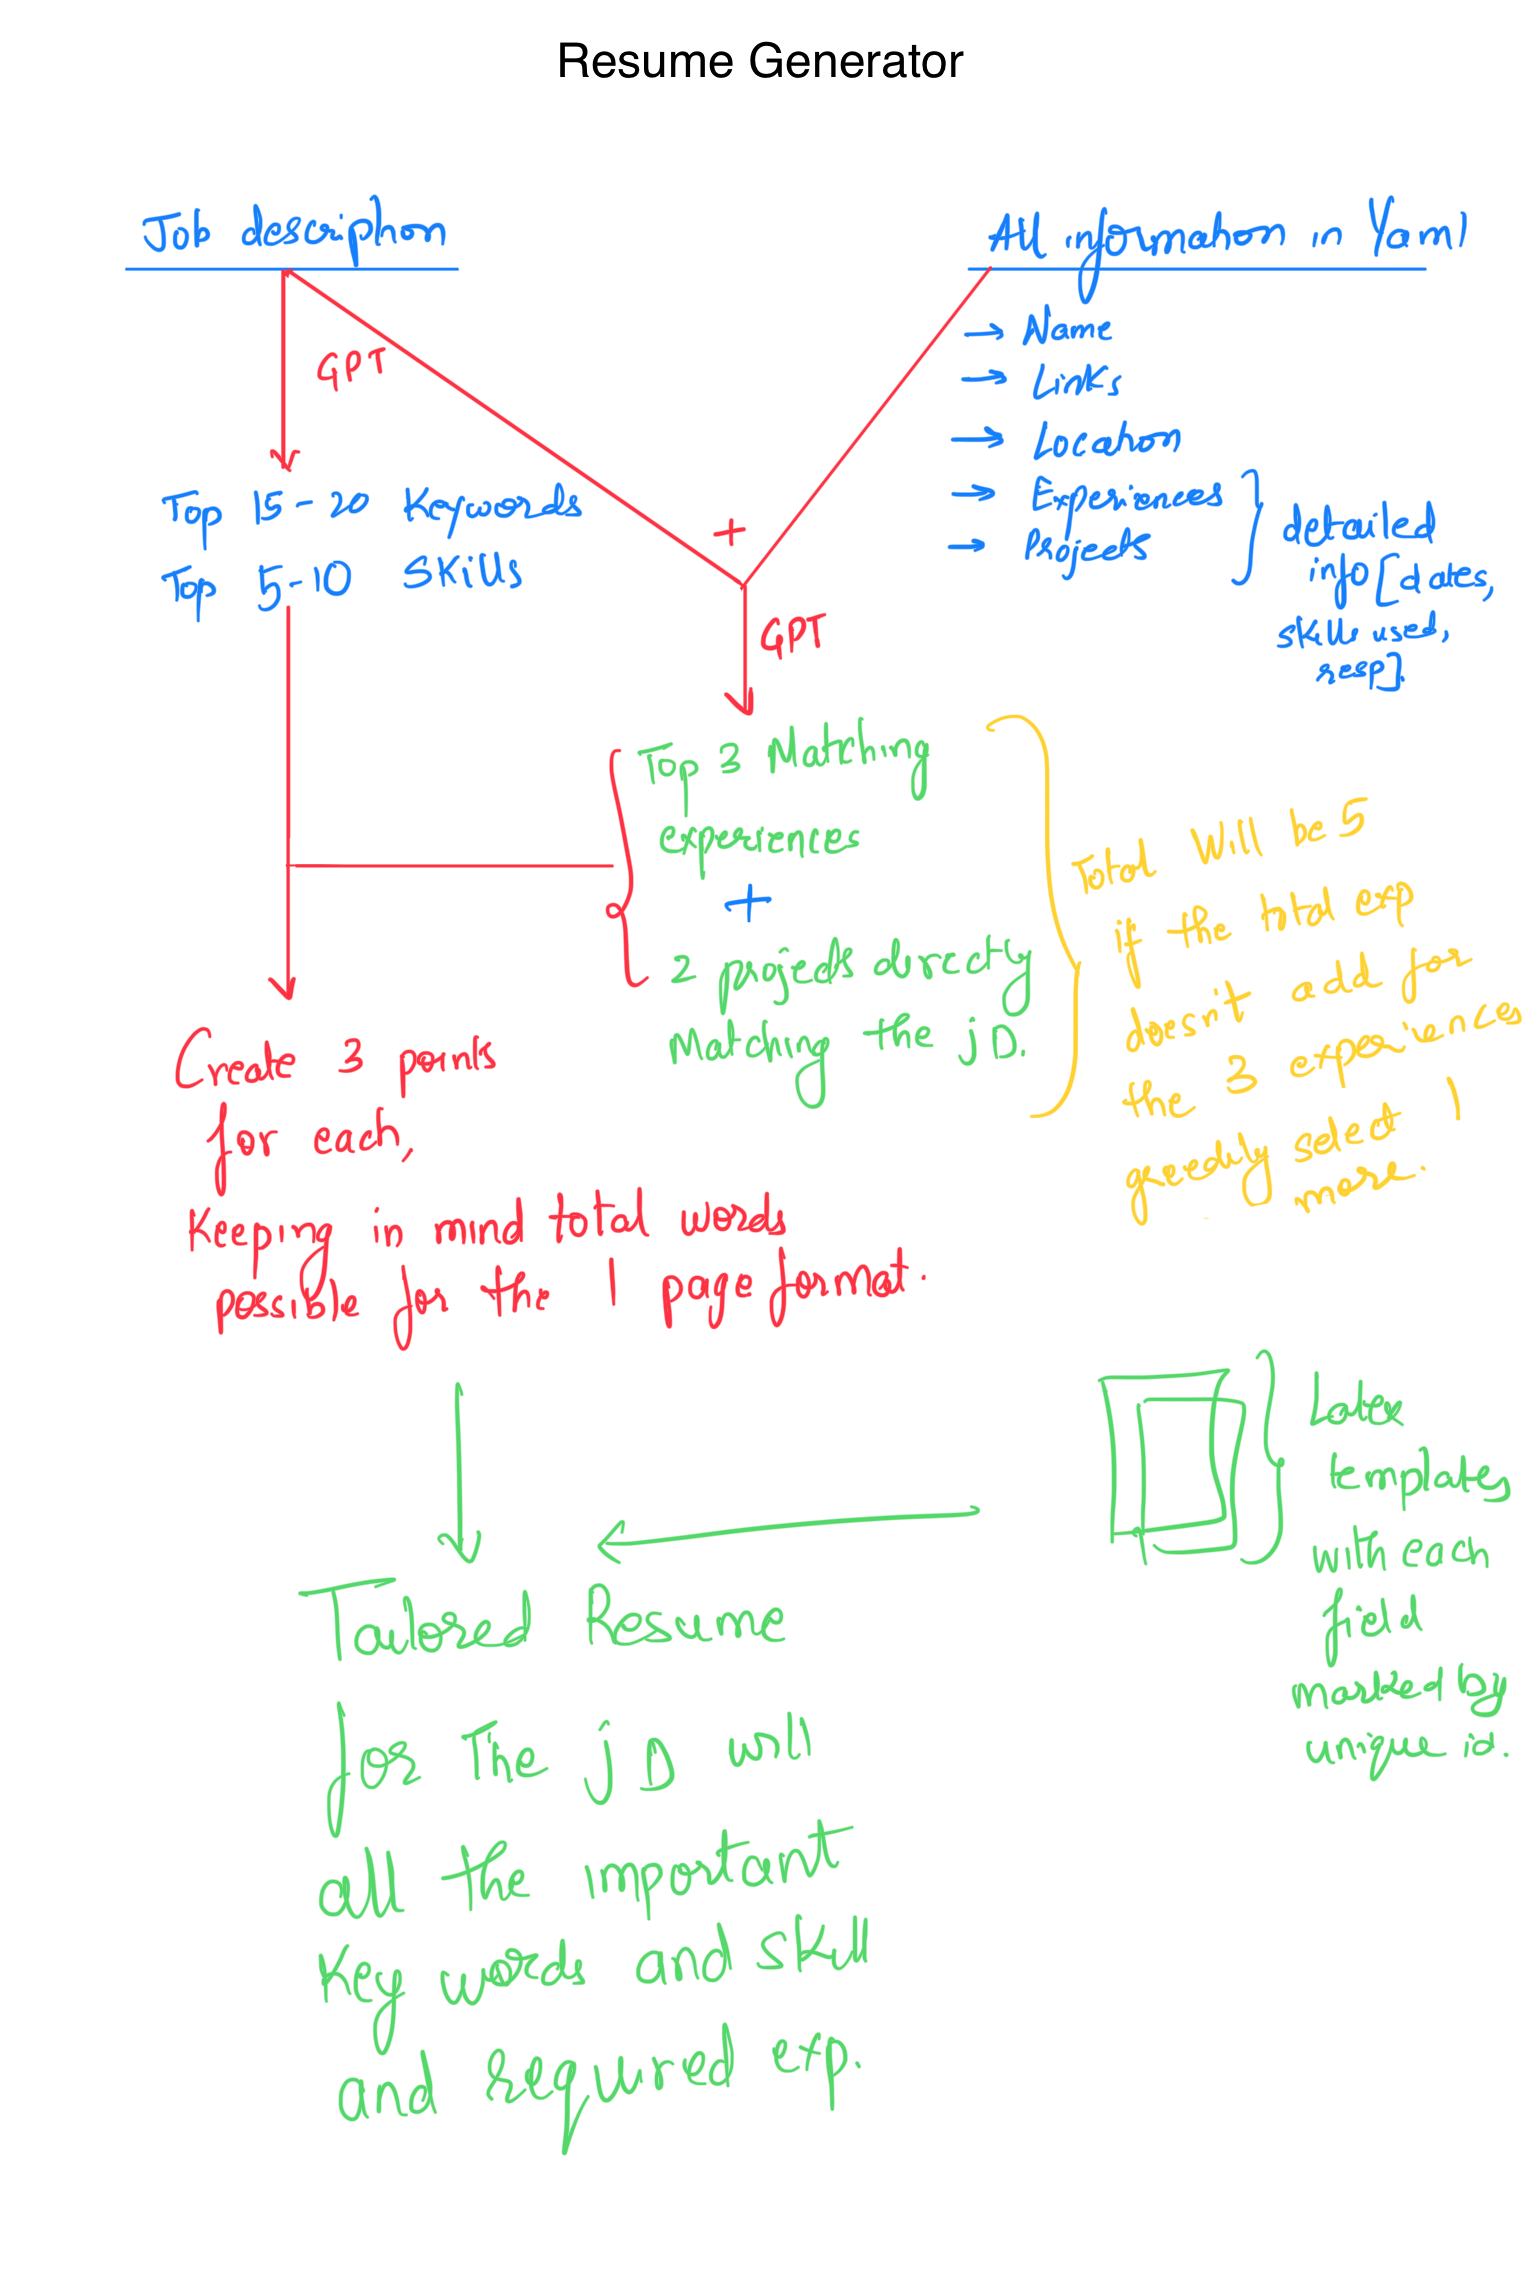 Resume Generator
Job description
GPT
Top 15-20 Keywords
Top 5-10 Skills
All information in Yaml
→ Name
→ Links
→ Location
→ Experiences
→ Projects
detailed
info [dates,
skills used,
resp].
+
GPT
Top 3 Matching
experiences
+
2 projects directly
Matching the jD.
Total Will be 5
if the total exp
doesn't add for
the 3 experiences
greedily select 1
more.
Create 3 points
for each,
Keeping in mind total words
possible for the 1 page format.
Latex
templates
with each
field
marked by
unique id.
Tailored Resume
for The jD will
all the important
Key words and skill
and required exp.